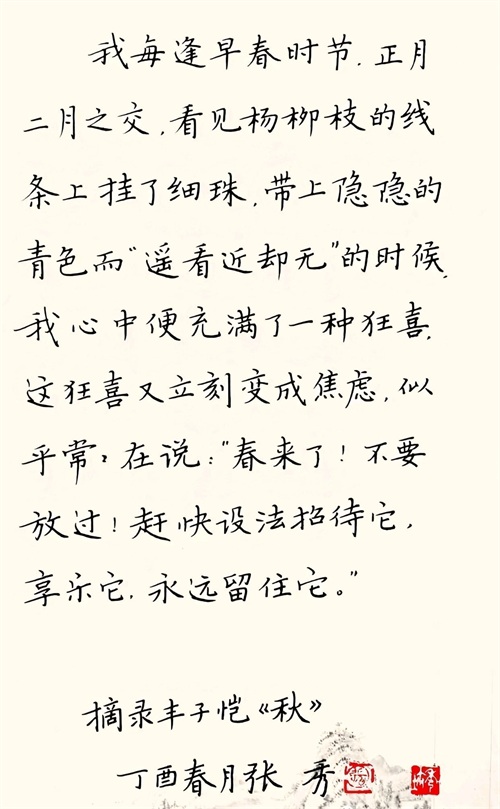 我每逢早春时节，正月
二月之交，看见杨柳枝的线
条上挂了细珠，带上隐隐的
青色而“遥看近却无”的时候，
我心中便充满了一种狂喜，
这狂喜又立刻变成焦虑，似
乎常常在说：“春来了！不要
放过！赶快设法招待它，
享乐它，永远留住它。”
摘录丰子恺《秋》
丁酉春月张秀